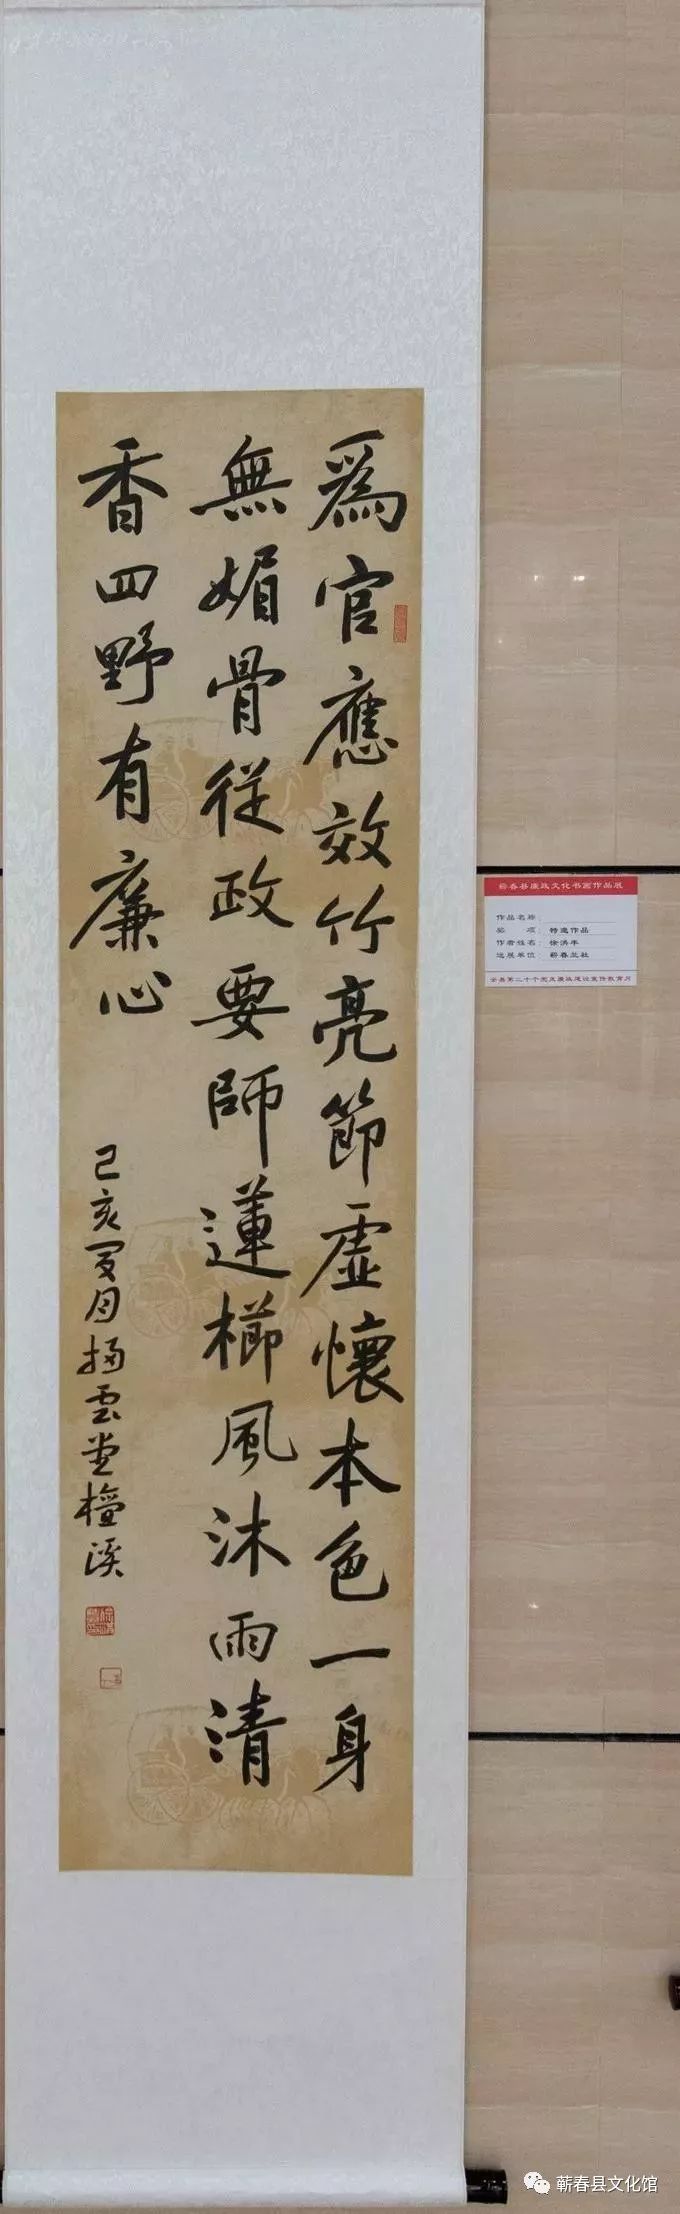 爲官應效竹亮節虛懷本色一身
無媚骨從政要師蓮櫛風沐雨清
香四野有廉心
己亥夏月揚雲堂檀溪
蕲春县廉政文化书画作品展
作品名称：
奖 项：特邀作品
作者姓名：徐洪丰
选展单位 蕲春兰社
全县第二十个党风廉政建设宣传教育月
蕲春县文化馆